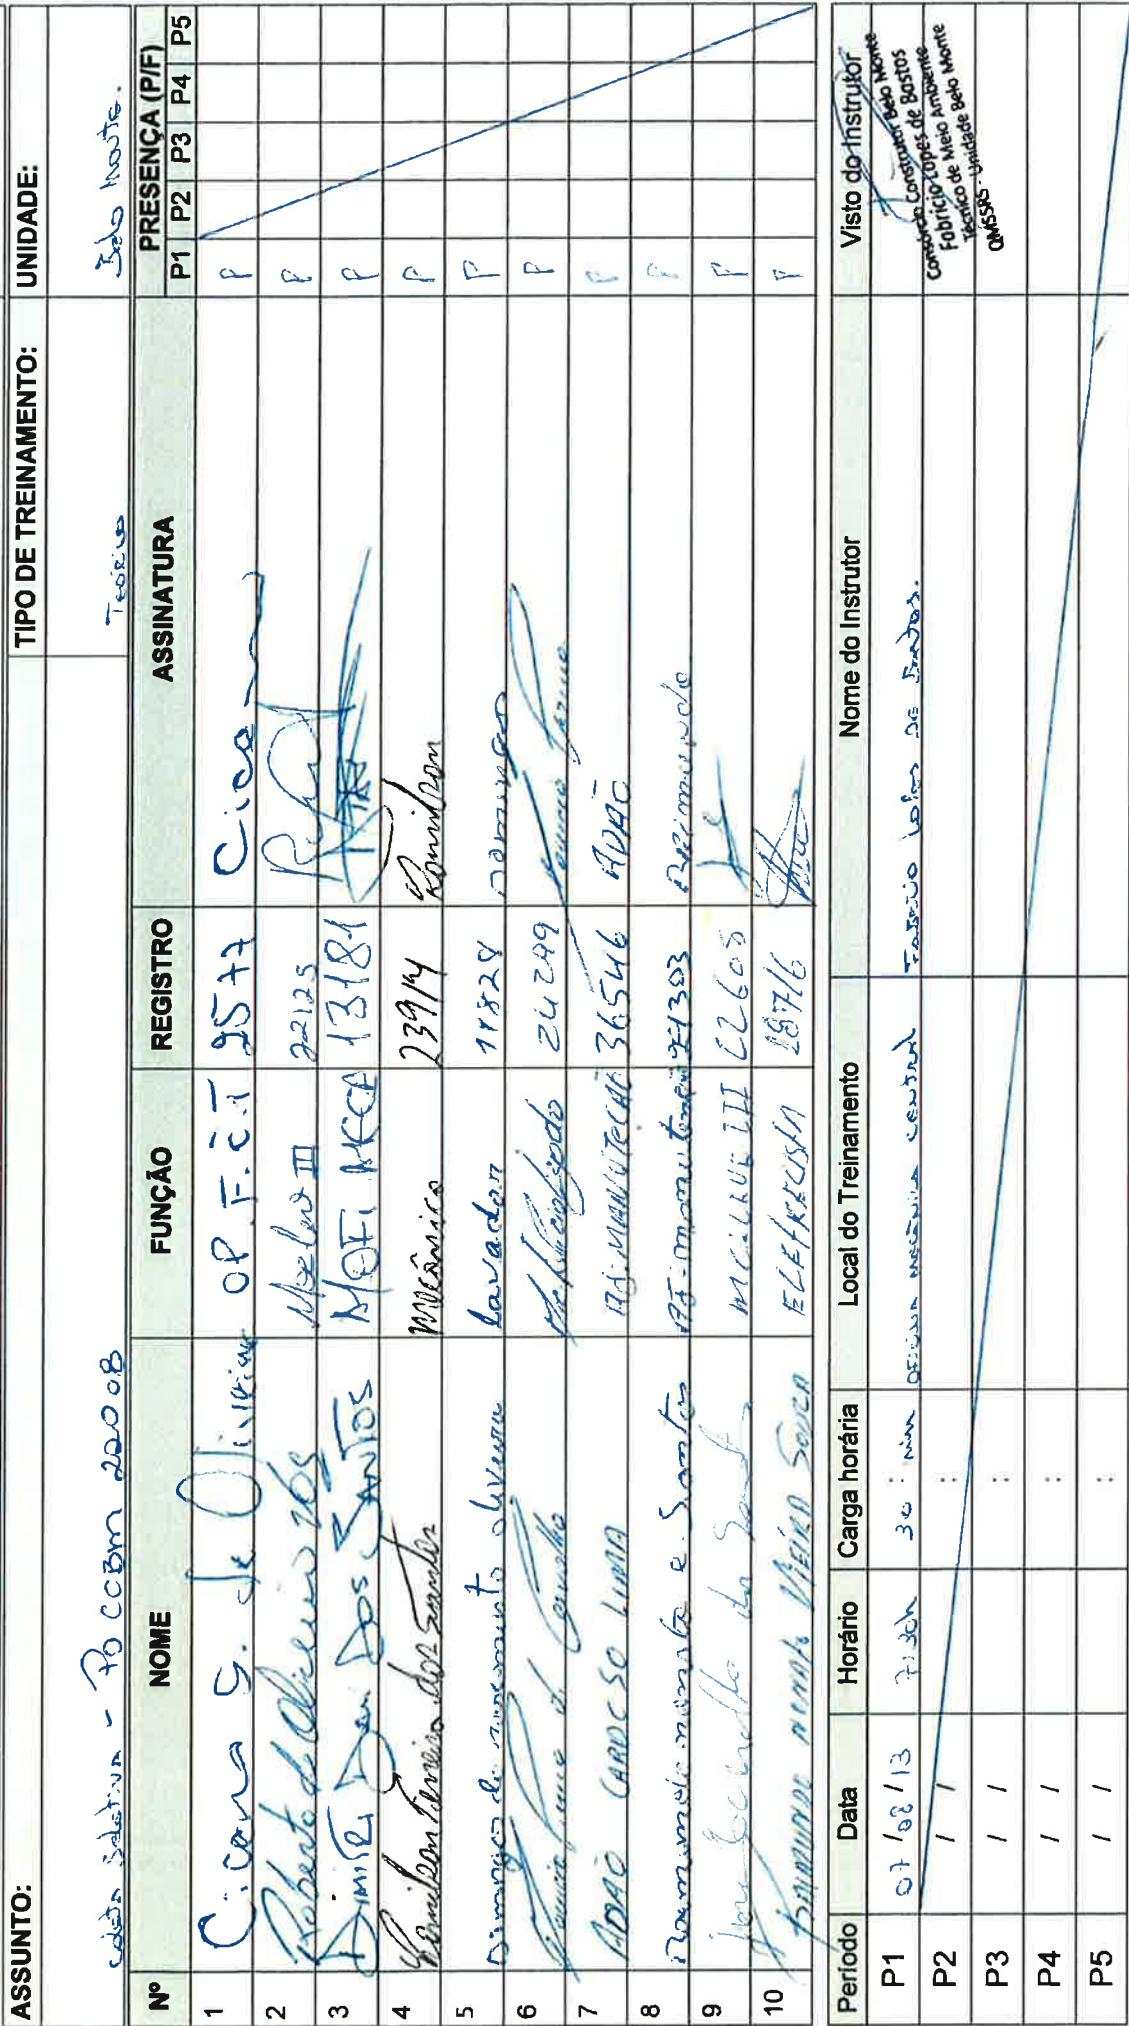 ASSUNTO: TIPO DE TREINAMENTO: UNIDADE:
coleta seletiva - PO CCBM 22008 Teórico Belo Monte.
Nº NOME FUNÇÃO REGISTRO ASSINATURA PRESENÇA (P/F)
P1 P2 P3 P4 P5
1 Cicana G. de Oliveira OP. F. C. I 2577 Cican P
2 Roberto de III 22125 P
3 DIMITRI DOS SANTOS 13181 P
4 Romilson Ferreira dos Santos mecânico 23914 Romilson P
5 Domingos do nascimento oliveira Lavador 11828 Domingos P
6 Carvalho 24299 P
7 ADÃO CARDOSO LIMA AJ. MANUTEÇÃO 36546 ADÃO P
8 Raimundo nonato e. Santos AJ. manutenção 21303 Raimundo P
9 III 22605 P
10 VIEIRA SOUZA ELETRICISTA 18716 P
Período Data Horário Carga horária Local do Treinamento Nome do Instrutor Visto do Instrutor
P1 07/08/13 7:30h 30 : min oficina mecânica central Fabricio Lopes de Bastos.
Consórcio Construtor Belo Monte
Fabrício Lopes de Bastos
Técnico de Meio Ambiente
QMSSRS - Unidade Belo Monte
P2 / / :
P3 / / :
P4 / / :
P5 / / :